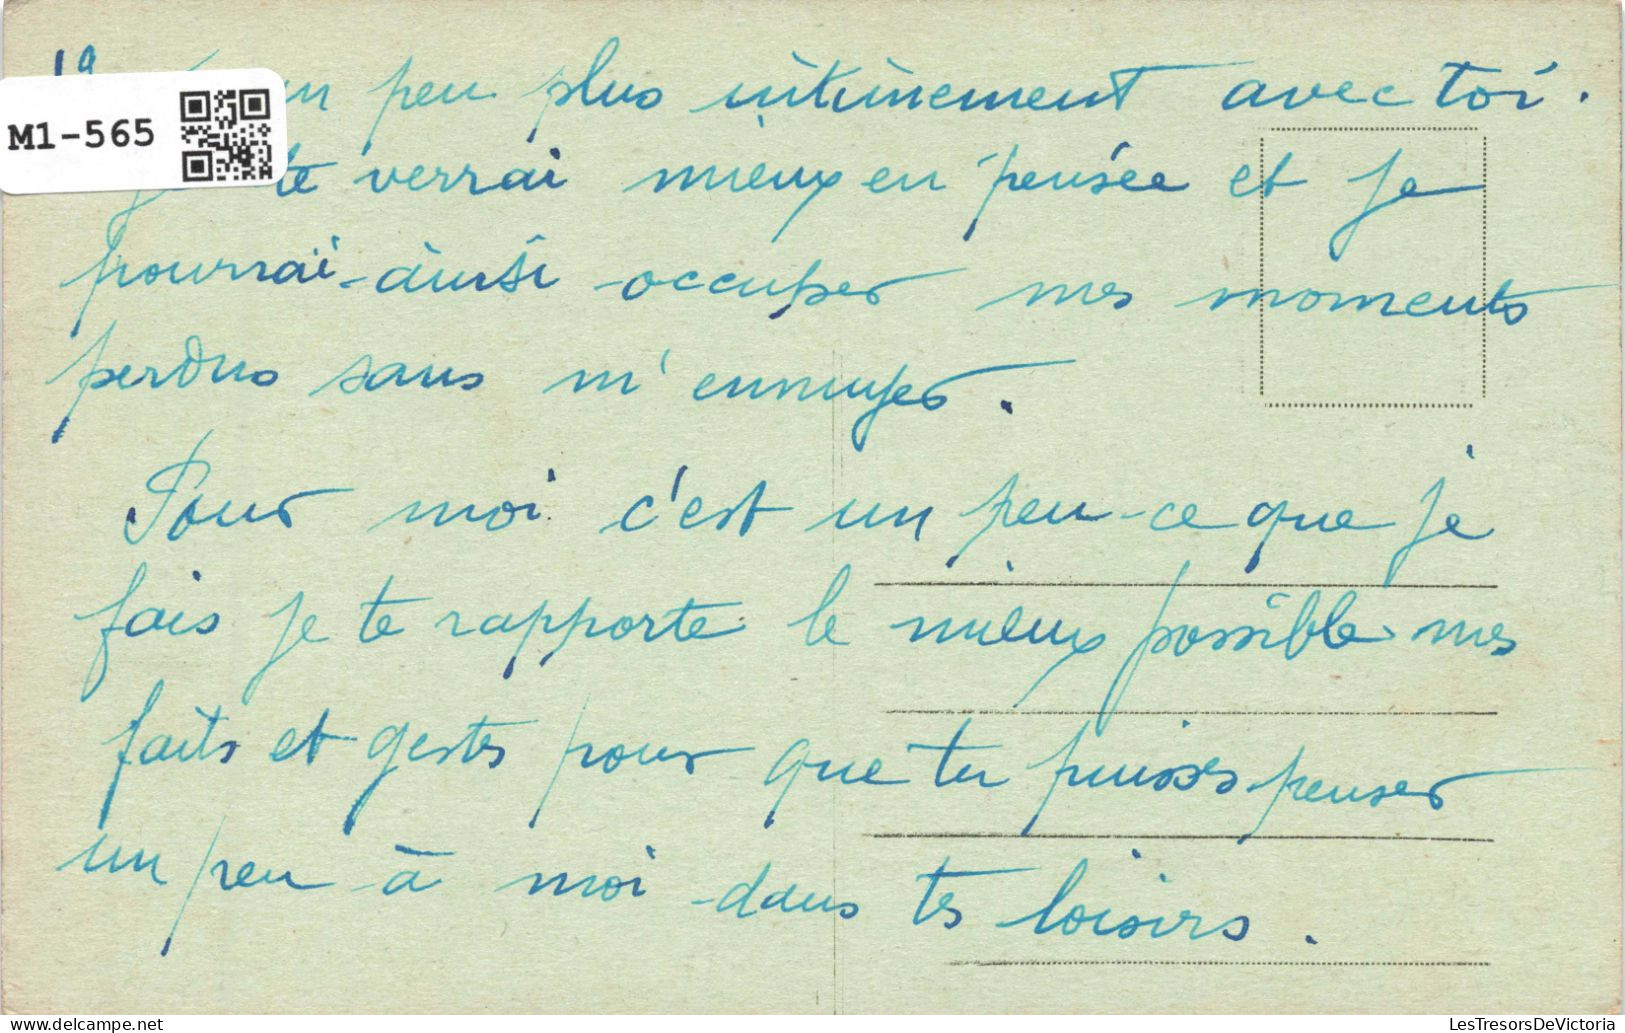 19
un peu plus intimement avec toi.
M1-565
te verrai mieux en pensée et je
pourrai ainsi occuper mes moments
perdus sans m'ennuyer.
Pour moi c'est un peu ce que je
fais je te rapporte le mieux possible mes
faits et gestes pour que tu puisses penser
un peu à moi dans tes loisirs.
LesTresorsDeVictoria